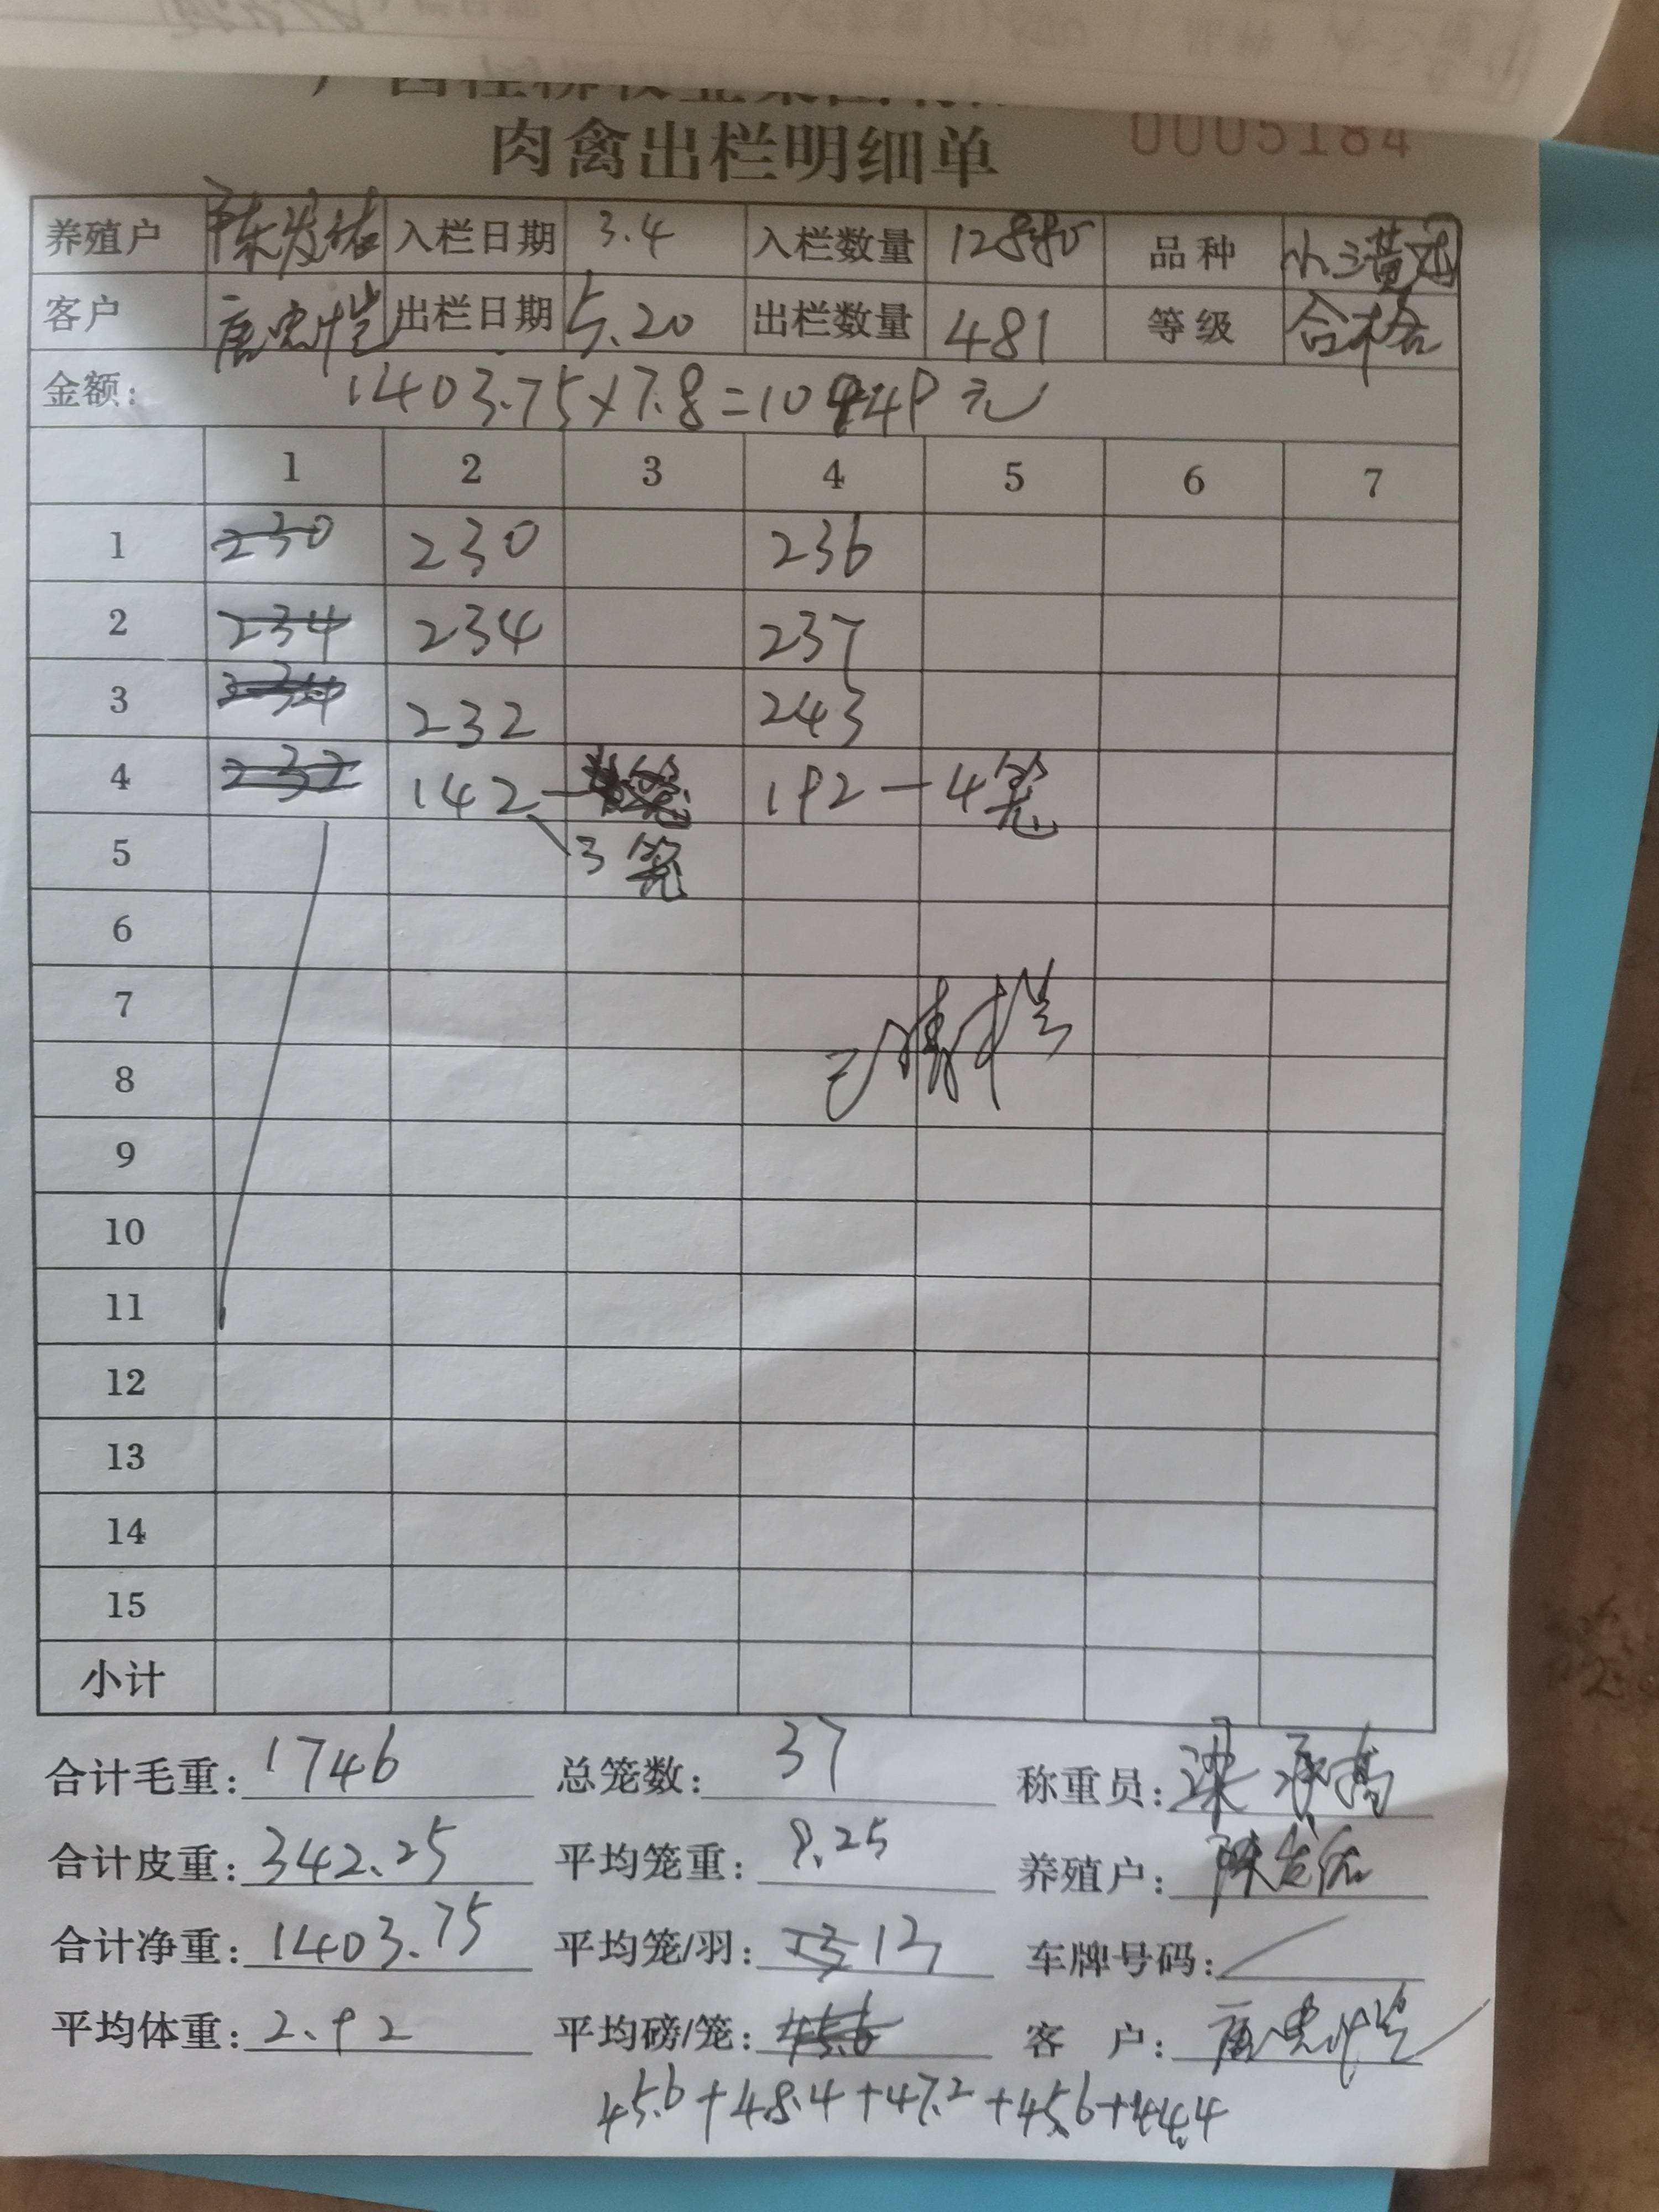 肉禽出栏明细单 0005184
养殖户 陈发佑 入栏日期 3.4 入栏数量 12880 品种 小三黄
客户 唐忠恺 出栏日期 5.20 出栏数量 481 等级 合格
金额: 1403.75×7.8=10949元
1 2 3 4 5 6 7
1 230 230 236
2 234 234 237
3 234 232 243
4 232 142— 192—4笼
5 3笼
6
7
8
9
10
11
12
13
14
15
小计
合计毛重: 1746 总笼数: 37 称重员: 梁
合计皮重: 342.25 平均笼重: 9.25 养殖户: 陈发佑
合计净重: 1403.75 平均笼/羽: 13 车牌号码: /
平均体重: 2.92 平均磅/笼: 45.6 客 户: 唐忠恺
45.6+48.4+47.2+45.6+44.4